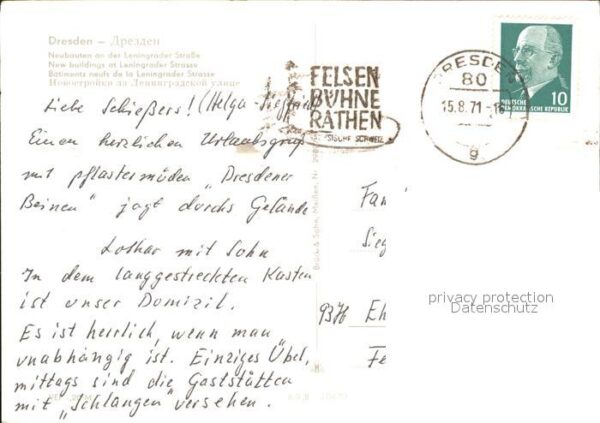 Dresden – Дрезден
Neubauten an der Leningrader Straße
New buildings at Leningrader Strasse
Bâtiments neufs de la Leningrader Strasse
Новостройка на Ленинградской улице
FELSEN
BÜHNE
RATHEN
SÄCHSISCHE SCHWEIZ
DRESDEN
80
15.8.71-16
g
DEUTSCHE
DEMOKRATISCHE REPUBLIK
10
Liebe Schießers! (Helga-Siegfried)
Einen herzlichen Urlaubsgruß
mit pflastermüden „Dresdener
Beinen" jagt durchs Gelände
Lothar mit Sohn
In dem langgestreckten Kasten
ist unser Domizil.
Es ist herrlich, wenn man
unabhängig ist. Einziges Übel,
mittags sind die Gaststätten
mit „Schlangen" versehen.
Brück & Sohn, Meißen, Nr.
Fam
Sieg
Eh
Fe
privacy protection
Datenschutz